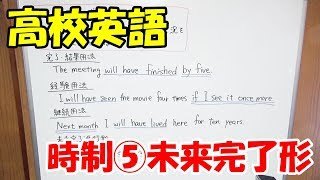 高校英語
完了・結果用法
The meeting will have finished by five.
経験用法
I will have seen the movie four times if I see it once more.
継続用法
Next month I will have lived here for ten years.
時制⑤未来完了形